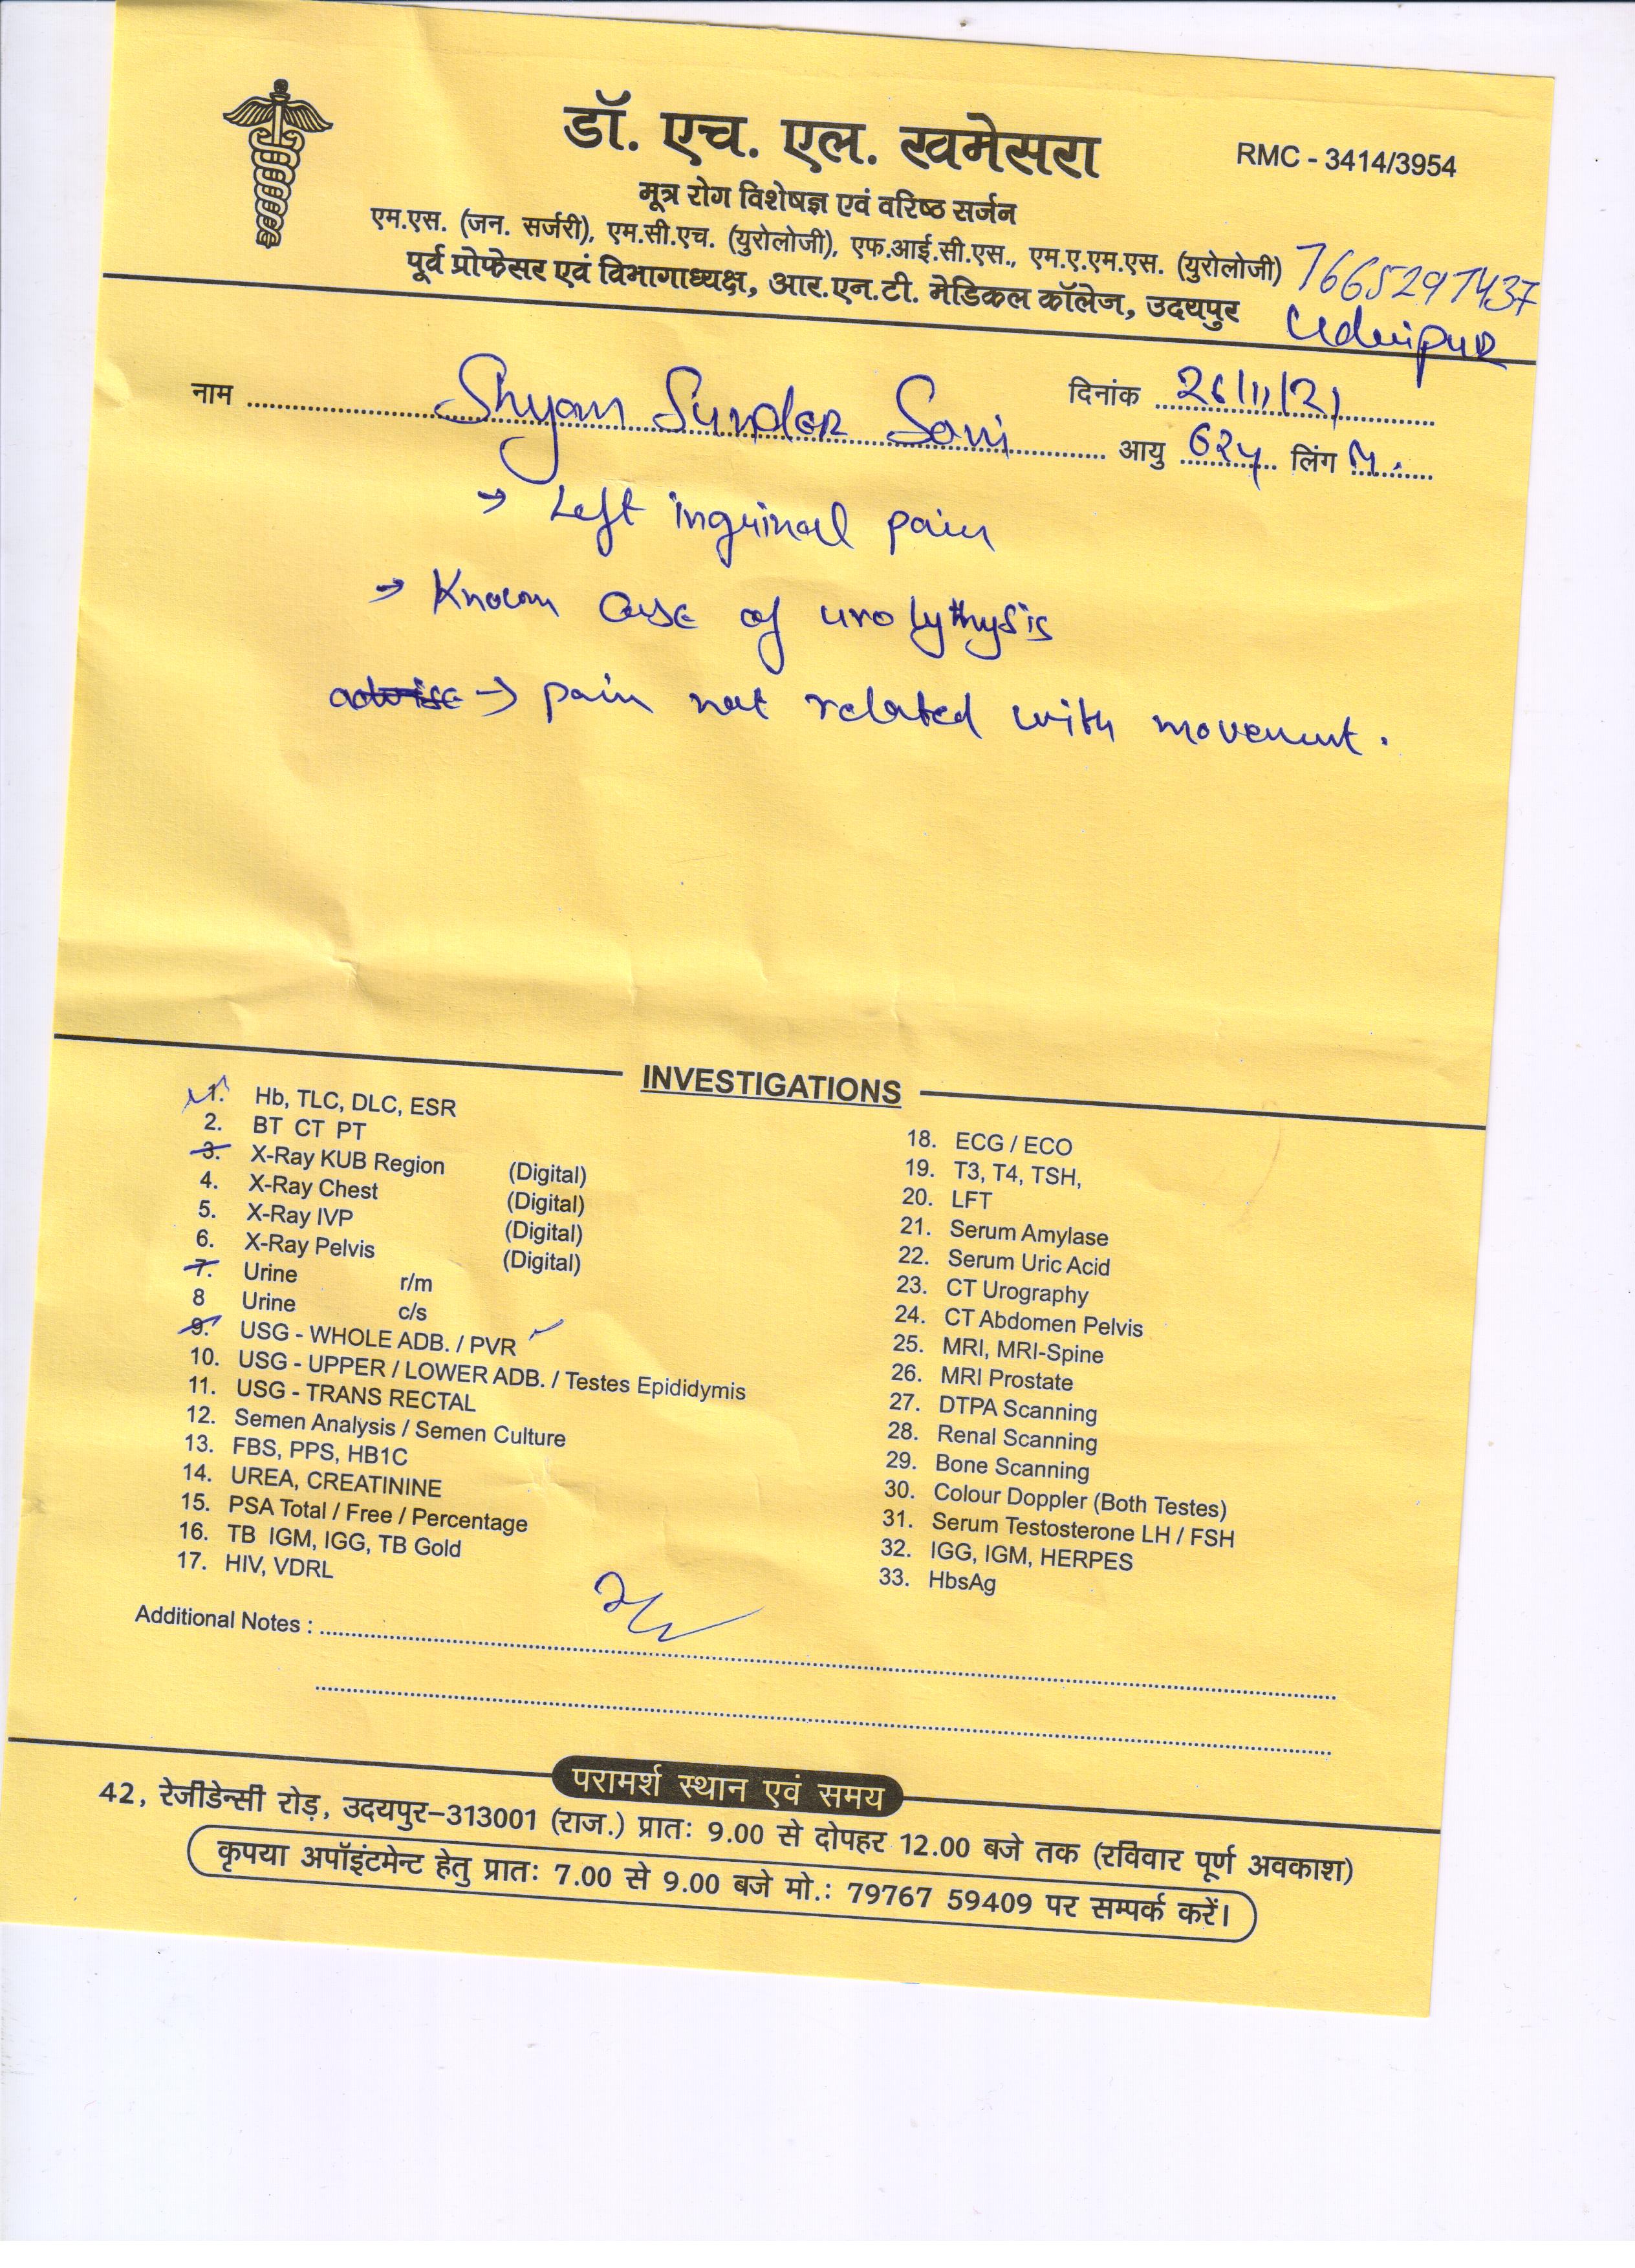 डॉ. एच. एल. खमेसरा
RMC - 3414/3954
मूत्र रोग विशेषज्ञ एवं वरिष्ठ सर्जन
एम.एस. (जन. सर्जरी), एम.सी.एच. (युरोलोजी), एफ.आई.सी.एस., एम.ए.एम.एस. (युरोलोजी)
पूर्व प्रोफेसर एवं विभागाध्यक्ष, आर.एन.टी. मेडिकल कॉलेज, उदयपुर
7665297437
Udaipur
नाम Shyam Sunder Soni दिनांक 26/11/21
आयु 62y लिंग M.
→ Left inguinal pain
→ Known case of urolythysis
advise → pain not related with movement.
INVESTIGATIONS
1. Hb, TLC, DLC, ESR
2. BT CT PT
3. X-Ray KUB Region (Digital)
4. X-Ray Chest (Digital)
5. X-Ray IVP (Digital)
6. X-Ray Pelvis (Digital)
7. Urine r/m
8 Urine c/s
9. USG - WHOLE ADB. / PVR
10. USG - UPPER / LOWER ADB. / Testes Epididymis
11. USG - TRANS RECTAL
12. Semen Analysis / Semen Culture
13. FBS, PPS, HB1C
14. UREA, CREATININE
15. PSA Total / Free / Percentage
16. TB IGM, IGG, TB Gold
17. HIV, VDRL
18. ECG / ECO
19. T3, T4, TSH,
20. LFT
21. Serum Amylase
22. Serum Uric Acid
23. CT Urography
24. CT Abdomen Pelvis
25. MRI, MRI-Spine
26. MRI Prostate
27. DTPA Scanning
28. Renal Scanning
29. Bone Scanning
30. Colour Doppler (Both Testes)
31. Serum Testosterone LH / FSH
32. IGG, IGM, HERPES
33. HbsAg
Additional Notes :
परामर्श स्थान एवं समय
42, रेजीडेन्सी रोड़, उदयपुर–313001 (राज.) प्रातः 9.00 से दोपहर 12.00 बजे तक (रविवार पूर्ण अवकाश)
कृपया अपॉइंटमेन्ट हेतु प्रातः 7.00 से 9.00 बजे मो.: 79767 59409 पर सम्पर्क करें।